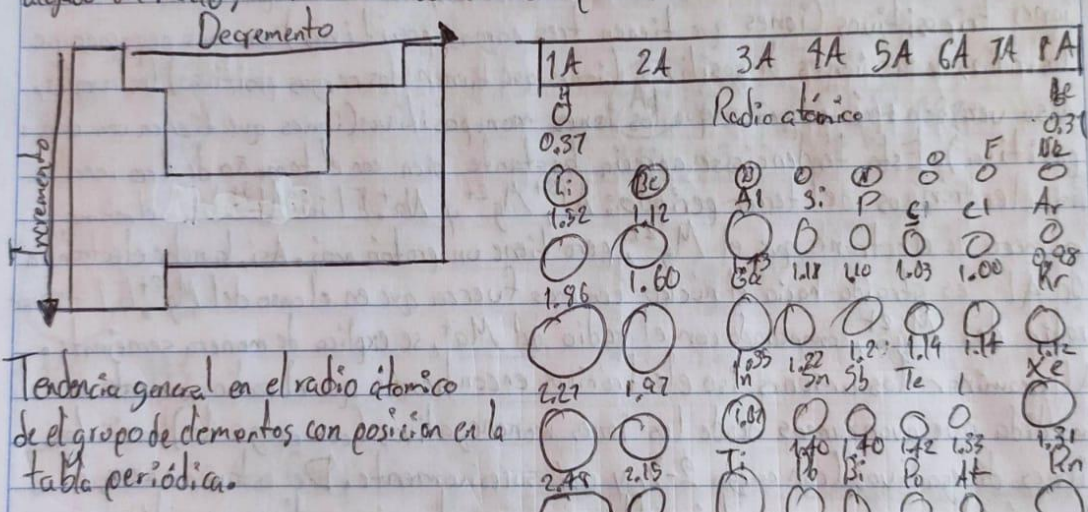 Decremento
Incremento
Tendencia general en el radio átomico
de el grupo de elementos con posición en la
tabla periódica.
1A 2A 3A 4A 5A 6A 7A 8A
H
Radio atómico
0.37 0.31
O F Ne
Li Be B N
1.52 1.12 Al Si P S Cl Ar
1.18 1.10 1.03 1.00 0.98
1.86 1.60 Ga Kr
1.35 1.22 1.14 1.12
2.27 1.97 In Sn Sb Te I Xe
1.40 1.40 1.42 1.33 1.31
2.48 2.15 Pb Bi Po At Rn